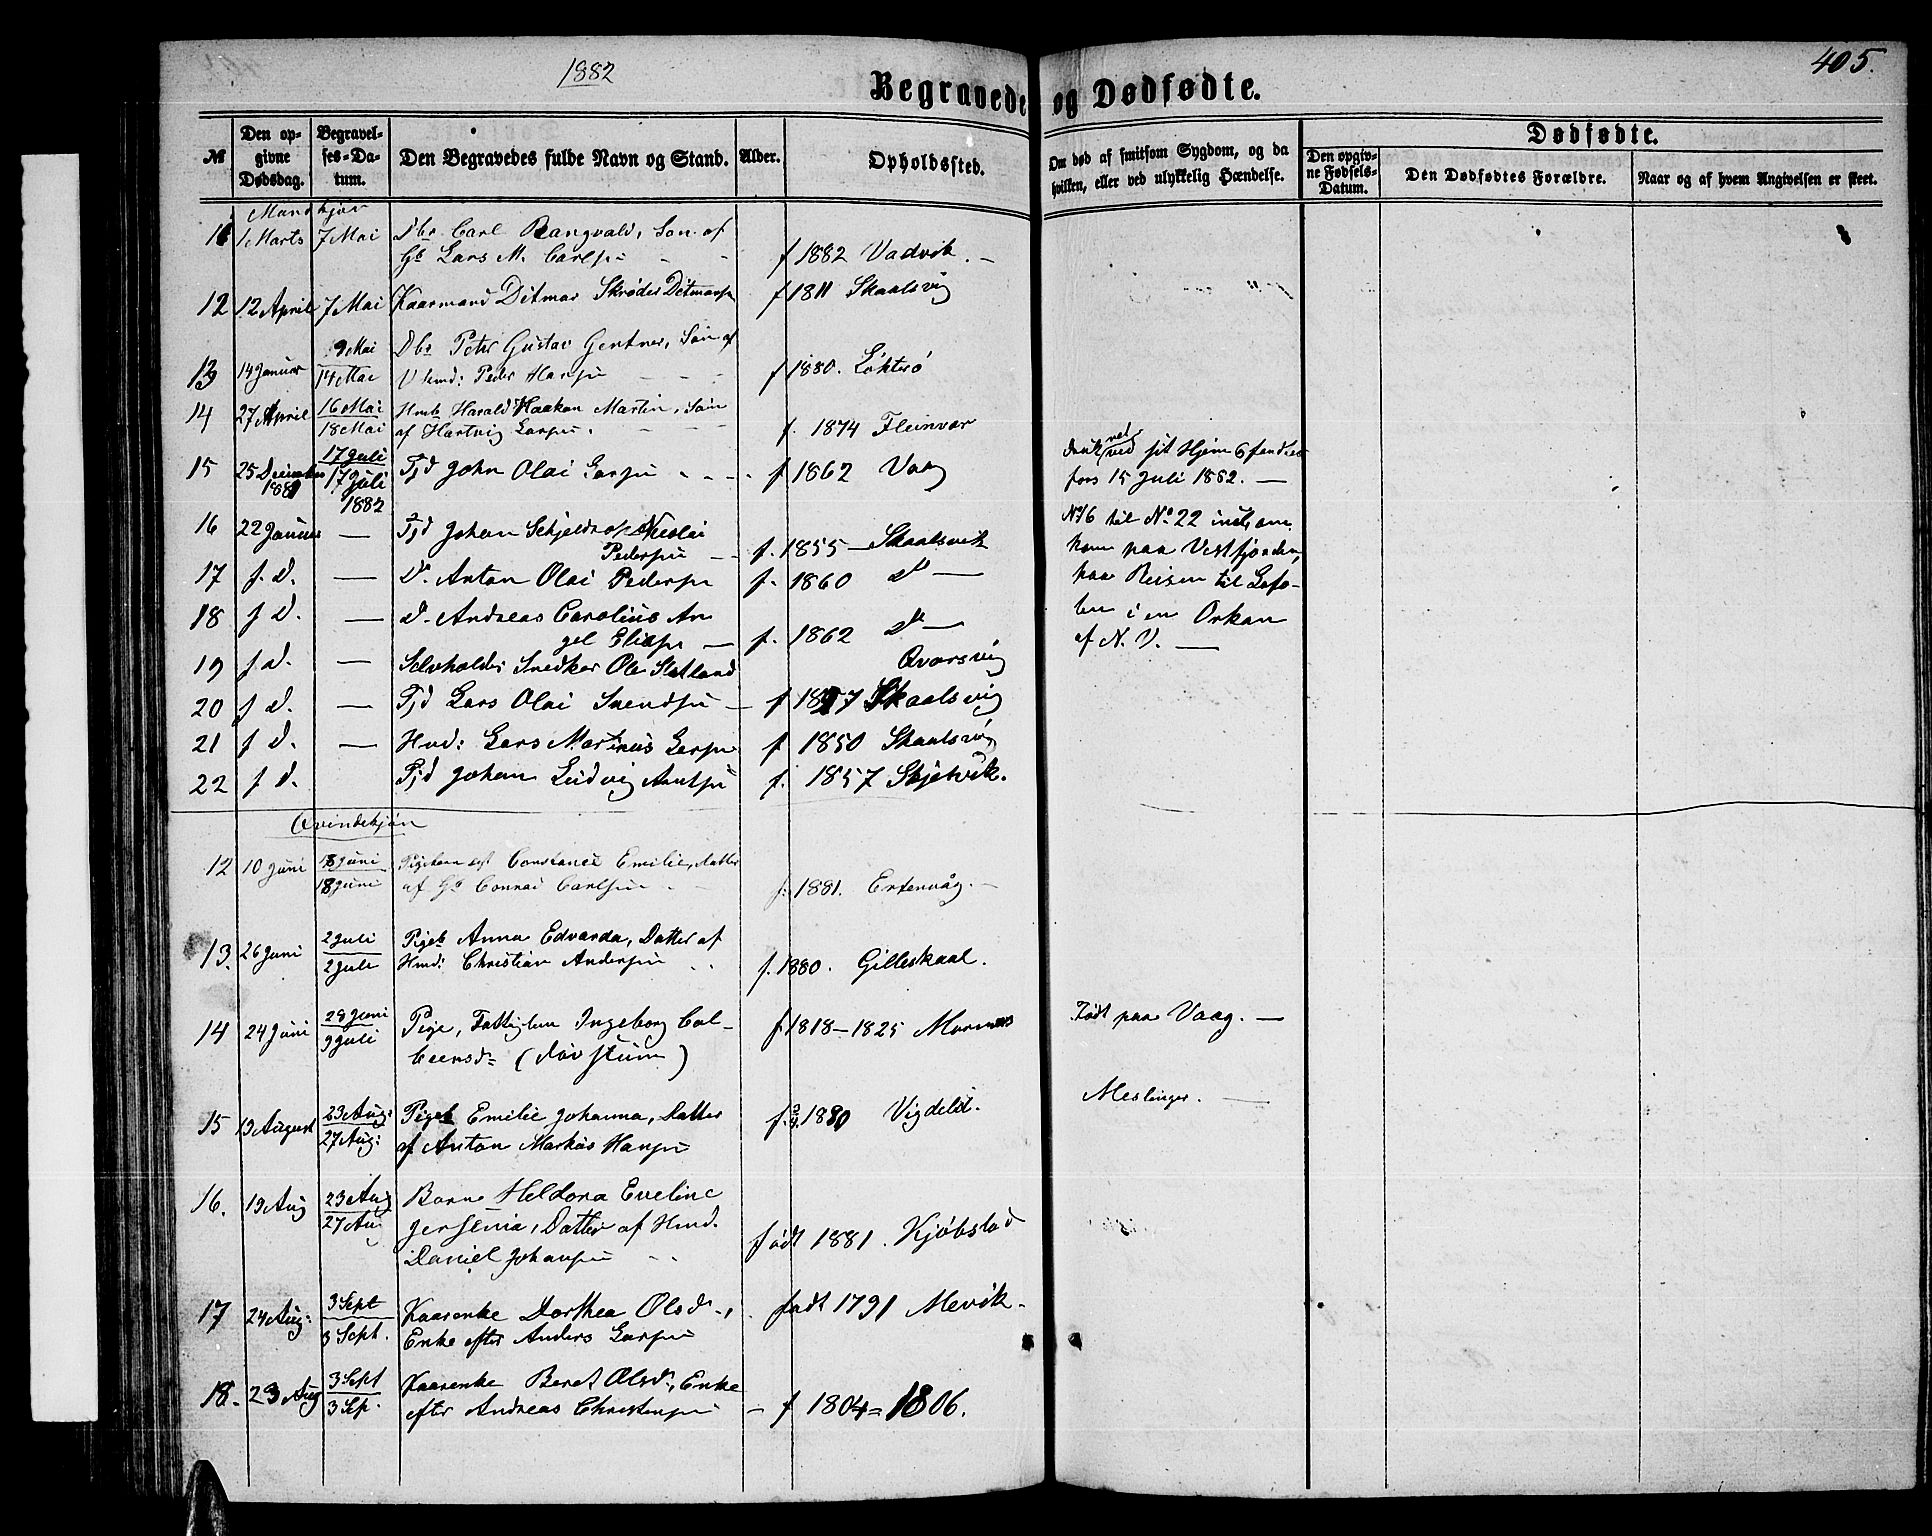 1882
405.
Begravede og Dødfødte.
№
Den opgivne Dødsdag.
Begravelses-Datum.
Den Begravedes fulde Navn og Stand.
Alder.
Opholdssted.
Om død af smitsom Sygdom, og da
hvilken, eller ved ulykkelig Hændelse.
Dødfødte.
Den opgivne Fødsels-Datum.
Den Dødfødtes Forældre.
Naar og af hvem Angivelsen er skeet.
Mandkjøn
11 1 Marts 7 Mai Dbs Carl Rangvald, Søn af
Gb Lars M. Carlsen f 1882 Vadvik. -
12 12 April 7 Mai Kaarmand Ditmar Skrøder Ditmarsn f 1811 Skaalsvig
13 14 Januar 9 Mai 14 Mai Dbs Peter Gustav Gentner, Søn af
Hmd: Peder Hansen f 1880. Løkterø
14 27 April 16 Mai 18 Mai Harald Haakon Martin, Søn
af Hartvig Larsen. f. 1874 Fleinvær
15 25 December 1881 17 Juli 17 Juli 1882 Tjd John Olai Larsen f 1862 Vaag
ved sit Hjem
fors 15 Juli 1882. —
16 22 Januar — Tjd Johan Schjelderof Nicolai
Pedersen f. 1855 - Skaalsvik
N 16 til No 22 incl, om
kom paa Vestfjorden,
paa Reisen til Lofo-
ten i en Orkan
af N. V. —
17 f. D. — D. Anton Olai Pedersen f. 1860 D —
18 f D. — D. Andreas Carolius An
gel Eliasen — f. 1862 D —
19 f d. — Selvholder Snedker Ole Slatland Qvarsvig
20 f d. — Tjd Lars Olai Svendsen f 1857 Skaalsvig
21 f d. — Hmd: Lars Martinus Larsen f 1850 Skaalsvig
22 f d. Tjd Johan Ludvig Arntsen f. 1857 Skjelvik.
Qvindekjøn
12 10 Juni 18 Juni 18 Juni Constance Emilie, datter
af Gb Conrad Carlsen f. 1881. Ertenvåg. -
13. 26 Juni 2 Juli 2 Juli Pigeb Anna Edvarda, Datter af
Hmd: Christian Andersen f. 1880. Gilleskaal.
14 24 Juni 28 Juni 9 Juli Pige, Fattiglem Ingeborg Col-
beensd= (døvstum) f. 1818 - 1825 Mornes
Født paa Vaag. —
15 19 August 23 Aug: 27 Aug: Pigeb Emilie Johanna, Datter
af Anton Markus Hansen f. 1880 Vigdeld.
Meslinger. —
16. 19 Aug 23 Aug 27 Aug Barne Heldora Eveline
Jersenia, Datter af Hmd.
Daniel Johansen født 1881. Kjøbstad
17 24 Aug: 3 Sept 3 Sept. Kaarenke Dorthea Olsd.,
Enke efter Anders Larsen født 1791 Mevik.
18. 23 Aug 3 Sept 3 Sep. Kaarenke Beret Olsd:, Enke
efter Andreas Christensen — f 1804 = 1806.